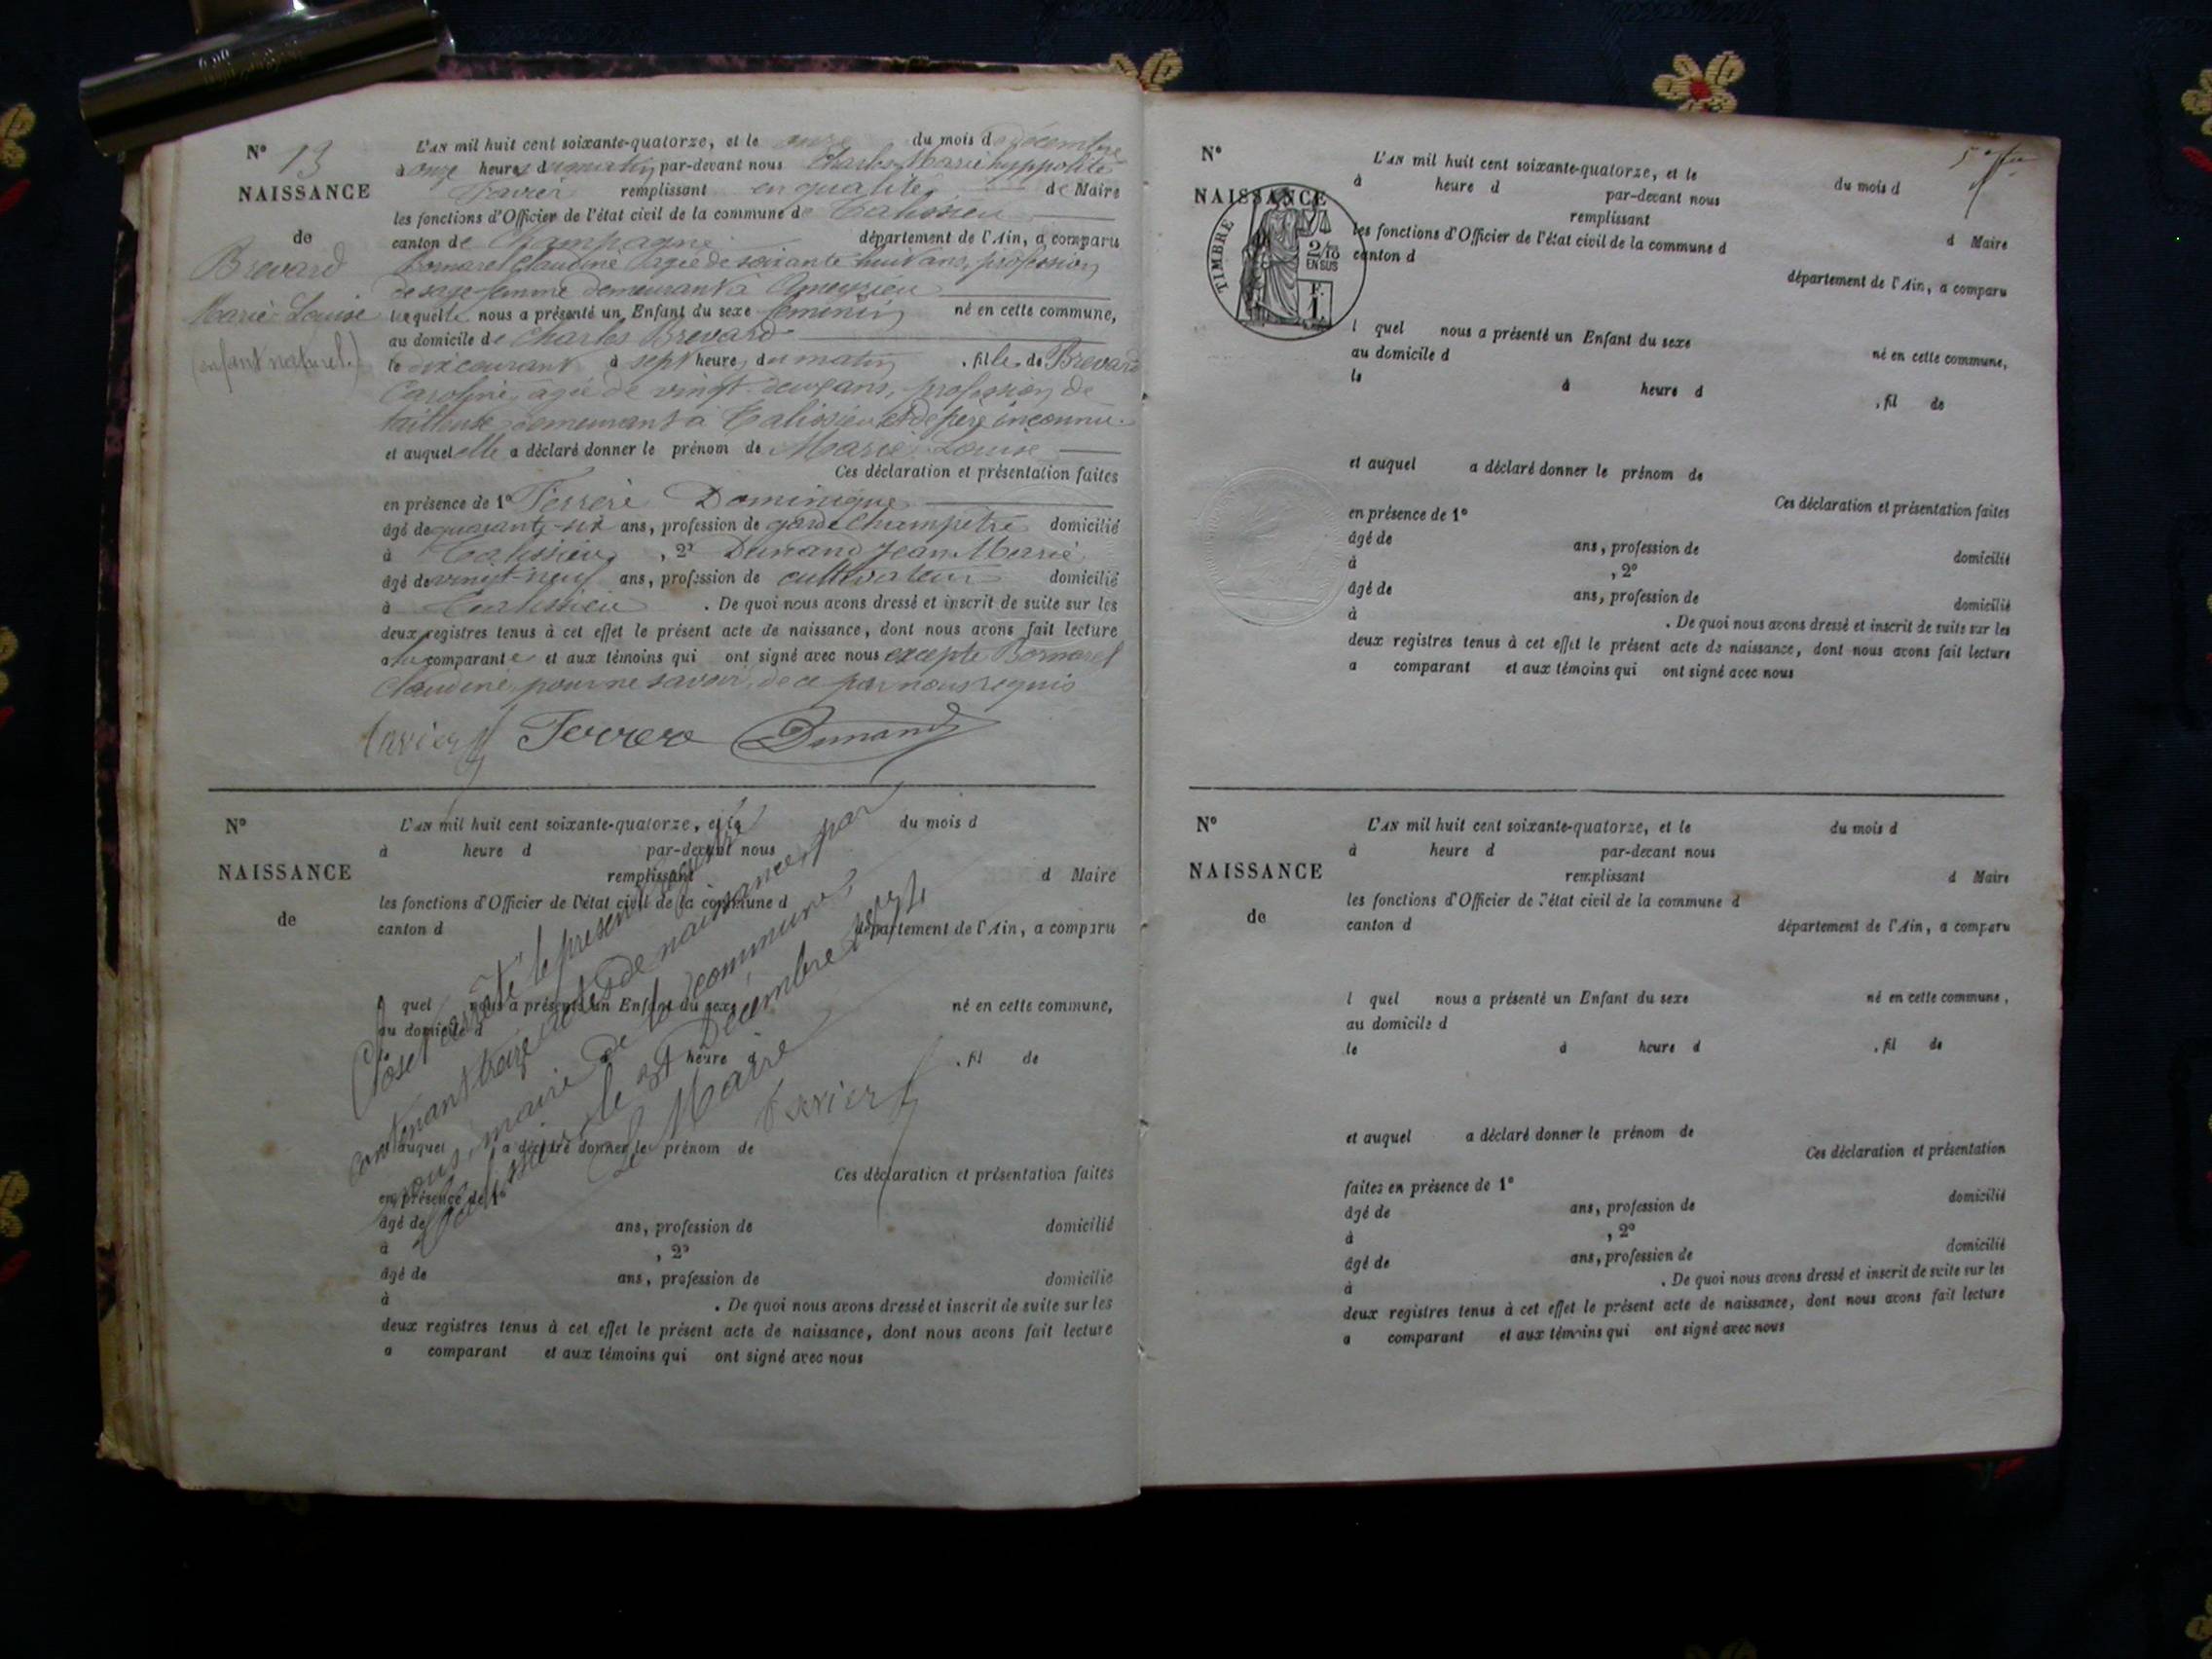 N° 13
NAISSANCE
de
Brevard
Marie Louise
(enfant naturel.)
L'AN mil huit cent soixante-quatorze, et le onze du mois de décembre
à onze heures du matin par-devant nous Charles Marie hyppolite
remplissant en qualité de Maire
les fonctions d'Officier de l'état civil de la commune de Talissieu
canton de Champagne département de l'Ain, a comparu
Bornarel Claudine agée de soixante huit ans, profession
de sage-femme demeurant à Ameyzieu
laquelle nous a présenté un Enfant du sexe féminin né en cette commune,
au domicile de Charles Brevard
le dix courant à sept heures du matin , fille de Brevard
Caroline, agée de vingt-deux ans, profession de
tailleuse demeurant à Talissieu et de père inconnu.
et auquel elle a déclaré donner le prénom de Marie Louise
Ces déclaration et présentation faites
en présence de 1° Ferrere Dominique
âgé de quarante-six ans, profession de garde champetre domicilié
à Talissieu , 2° Dunand Jean Marie
âgé de vingt-neuf ans, profession de cultivateur domicilié
à Talissieu . De quoi nous avons dressé et inscrit de suite sur les
deux registres tenus à cet effet le présent acte de naissance, dont nous avons fait lecture
a la comparante et aux témoins qui ont signé avec nous excepté Bornarel
Claudine pour ne savoir, de ce par nous requis
Ferrere Dunand
N°
NAISSANCE
de
L'AN mil huit cent soixante-quatorze, et le du mois d
à heure d par-devant nous
remplissant d Maire
les fonctions d'Officier de l'état civil de la commune d
canton d département de l'Ain, a comparu
l quel nous a présenté un Enfant du sexe né en cette commune,
au domicile d
le à heure d , fil de
et auquel a déclaré donner le prénom de
Ces déclaration et présentation faites
en présence de 1°
âgé de ans, profession de domicilié
à , 2°
âgé de ans, profession de domicilié
à . De quoi nous avons dressé et inscrit de suite sur les
deux registres tenus à cet effet le présent acte de naissance, dont nous avons fait lecture
a comparant et aux témoins qui ont signé avec nous
Clos et arrêté le présent registre
contenant treize actes de naissances, par
nous, maire de la commune,
Talissieu, le 31 Décembre 1874
Le Maire
N°
NAISSANCE
TIMBRE
2/10
EN SUS
F.
1.
L'AN mil huit cent soixante-quatorze, et le du mois d
à heure d par-devant nous
remplissant d Maire
les fonctions d'Officier de l'état civil de la commune d
canton d département de l'Ain, a comparu
l quel nous a présenté un Enfant du sexe né en cette commune,
au domicile d
le à heure d , fil de
et auquel a déclaré donner le prénom de
Ces déclaration et présentation faites
en présence de 1°
âgé de ans, profession de domicilié
à , 2°
âgé de ans, profession de domicilié
à . De quoi nous avons dressé et inscrit de suite sur les
deux registres tenus à cet effet le présent acte de naissance, dont nous avons fait lecture
a comparant et aux témoins qui ont signé avec nous
N°
NAISSANCE
de
L'AN mil huit cent soixante-quatorze, et le du mois d
à heure d par-devant nous
remplissant d Maire
les fonctions d'Officier de l'état civil de la commune d
canton d département de l'Ain, a comparu
l quel nous a présenté un Enfant du sexe né en cette commune,
au domicile d
le à heure d , fil de
et auquel a déclaré donner le prénom de
Ces déclaration et présentation
faites en présence de 1°
âgé de ans, profession de domicilié
à , 2°
âgé de ans, profession de domicilié
à . De quoi nous avons dressé et inscrit de suite sur les
deux registres tenus à cet effet le présent acte de naissance, dont nous avons fait lecture
a comparant et aux témoins qui ont signé avec nous